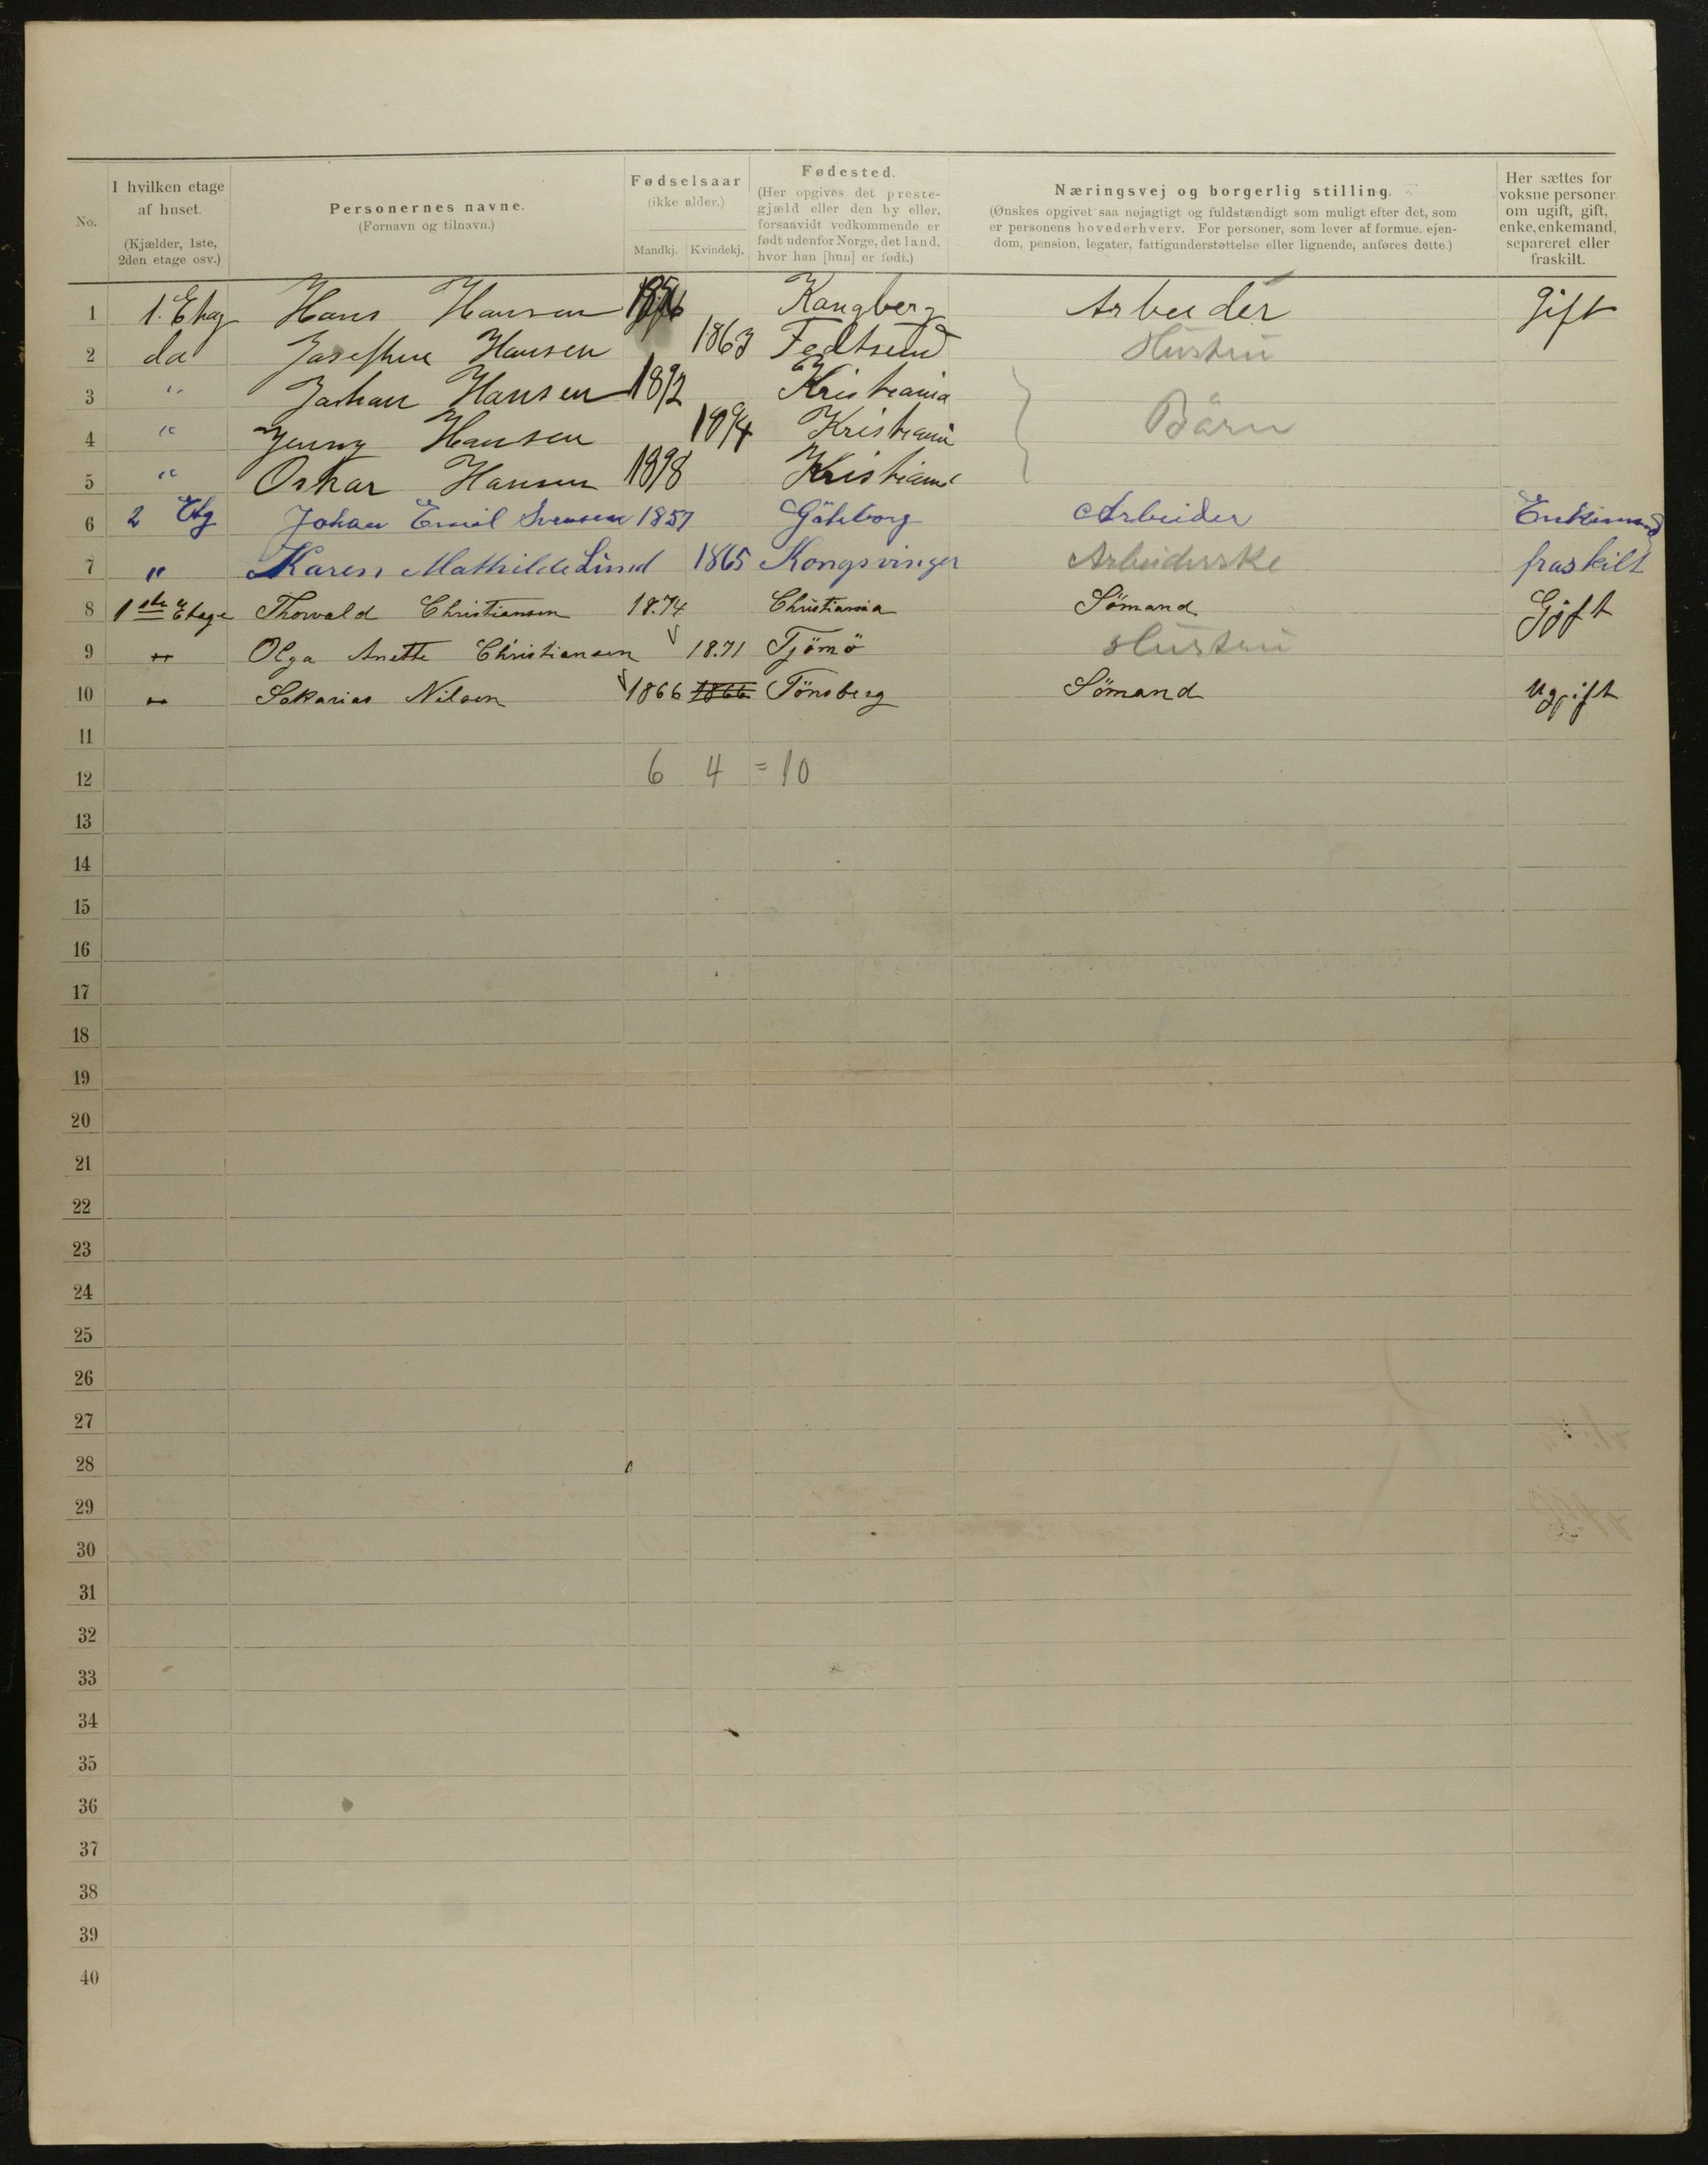 No.
I hvilken etage af huset.
(Kjælder, 1ste, 2den etage osv.)
Personernes navne.
(Fornavn og tilnavn.)
Fødselsaar
(ikke alder.)
Mandkj. Kvindekj.
Fødested.
(Her opgives det preste-
gjæld eller den by eller,
forsaavidt vedkommende er
født udenfor Norge, det land,
hvor han [hun] er født.)
Næringsvej og borgerlig stilling.
(Ønskes opgivet saa nøjagtigt og fuldstændigt som muligt efter det, som
er personens hovederhverv. For personer, som lever af formue, ejen-
dom, pension, legater, fattigunderstøttelse eller lignende, anføres dette.)
Her sættes for
voksne personer
om ugift, gift,
enke, enkemand,
separeret eller
fraskilt.
1 1. Etag Hans Hansen Kongberg Arbeider Gift
2 do Josefine Hansen 1863 Fedtsund Hustru
3 " Johan Hansen 1892 Kristiania
4 " Jenny Hansen 1894 Kristiania Börn
5 " Oskar Hansen 1898 Kristiania
6 2 Etg Johan Emil Svensen 1857 Göteborg Arbeider Enkemand
7 " Karen Mathilde Lund 1865 Kongsvinger Arbeiderske fraskilt
8 1ste Etage Thorvald Christiansen 18.74 Christiania Sömand Gift
9 " Olga Anette Christiansen 18.71 Tjömö Hustru
10 " Sakarias Nilsen 1866 1866 Tönsberg Sömand Ugift
11
12 6 4 = 10
13
14
15
16
17
18
19
20
21
22
23
24
25
26
27
28
29
30
31
32
33
34
35
36
37
38
39
40